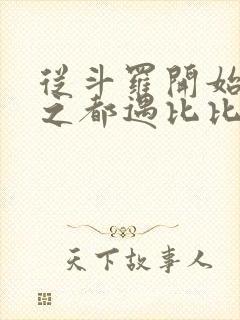 從斗羅開始
之都遇比比
天下故事人